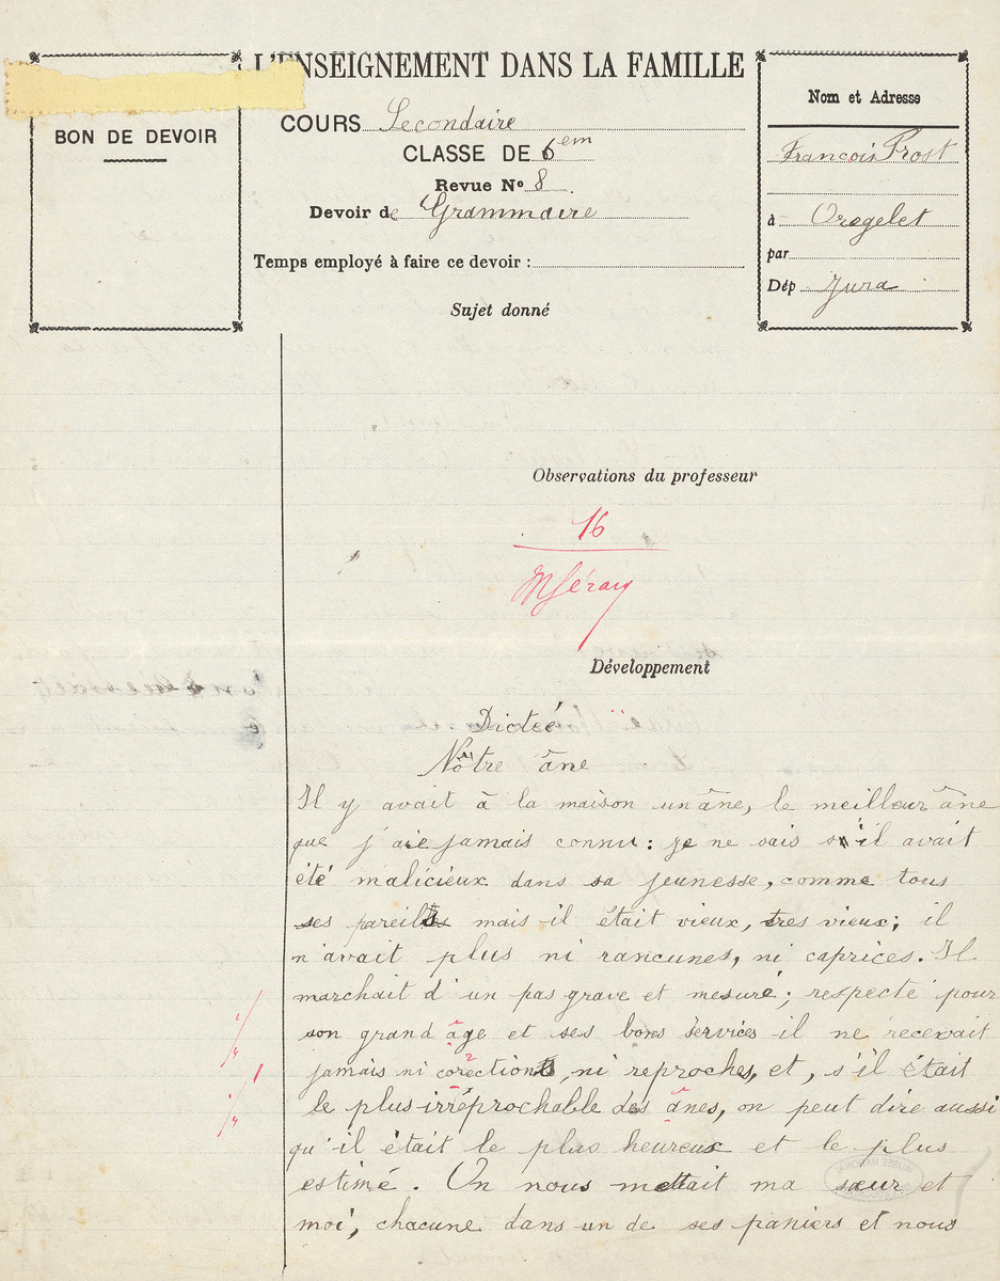 L'ENSEIGNEMENT DANS LA FAMILLE
BON DE DEVOIR
COURS Secondaire
CLASSE DE 6em
Revue No 8
Devoir de Grammaire
Temps employé à faire ce devoir :
Nom et Adresse
Francois Prost
à Orgelet
par
Dép Jura
Sujet donné
Observations du professeur
16
Développement
Dictée
Nôtre âne
Il y avait à la maison un âne, le meilleur âne
que j'aie jamais connu : je ne sais s'il avait
été malicieux dans sa jeunesse, comme tous
ses pareils mais il était vieux, tres vieux ; il
n'avait plus ni rancunes, ni caprices. Il
marchait d'un pas grave et mesuré ; respecté pour
son grand âge et ses bons services il ne recevait
jamais ni corections, ni reproches, et, s'il était
le plus irréprochable des ânes, on peut dire aussi
qu'il était le plus heureux et le plus
estimé. On nous mettait ma sœur et
moi, chacune dans un de ses paniers et nous